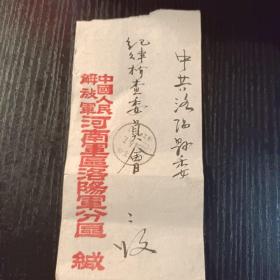 中共洛阳县委
纪律检查委員會 : 收
中國人民
解放軍
河南軍區洛陽軍分區 緘